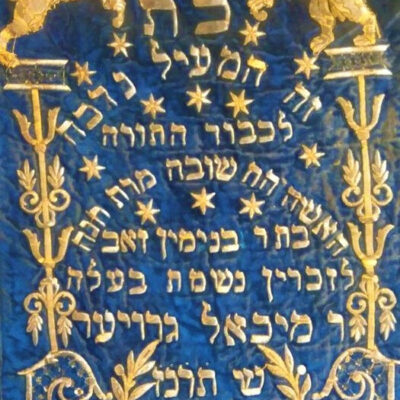 כת
זה המעיל נדבה
לכבוד התורה
האשה הח שובה מרת חנה
בתר בנימין זאב
לזכרון נשמת בעלה
ר מיכאל גרויער
ש